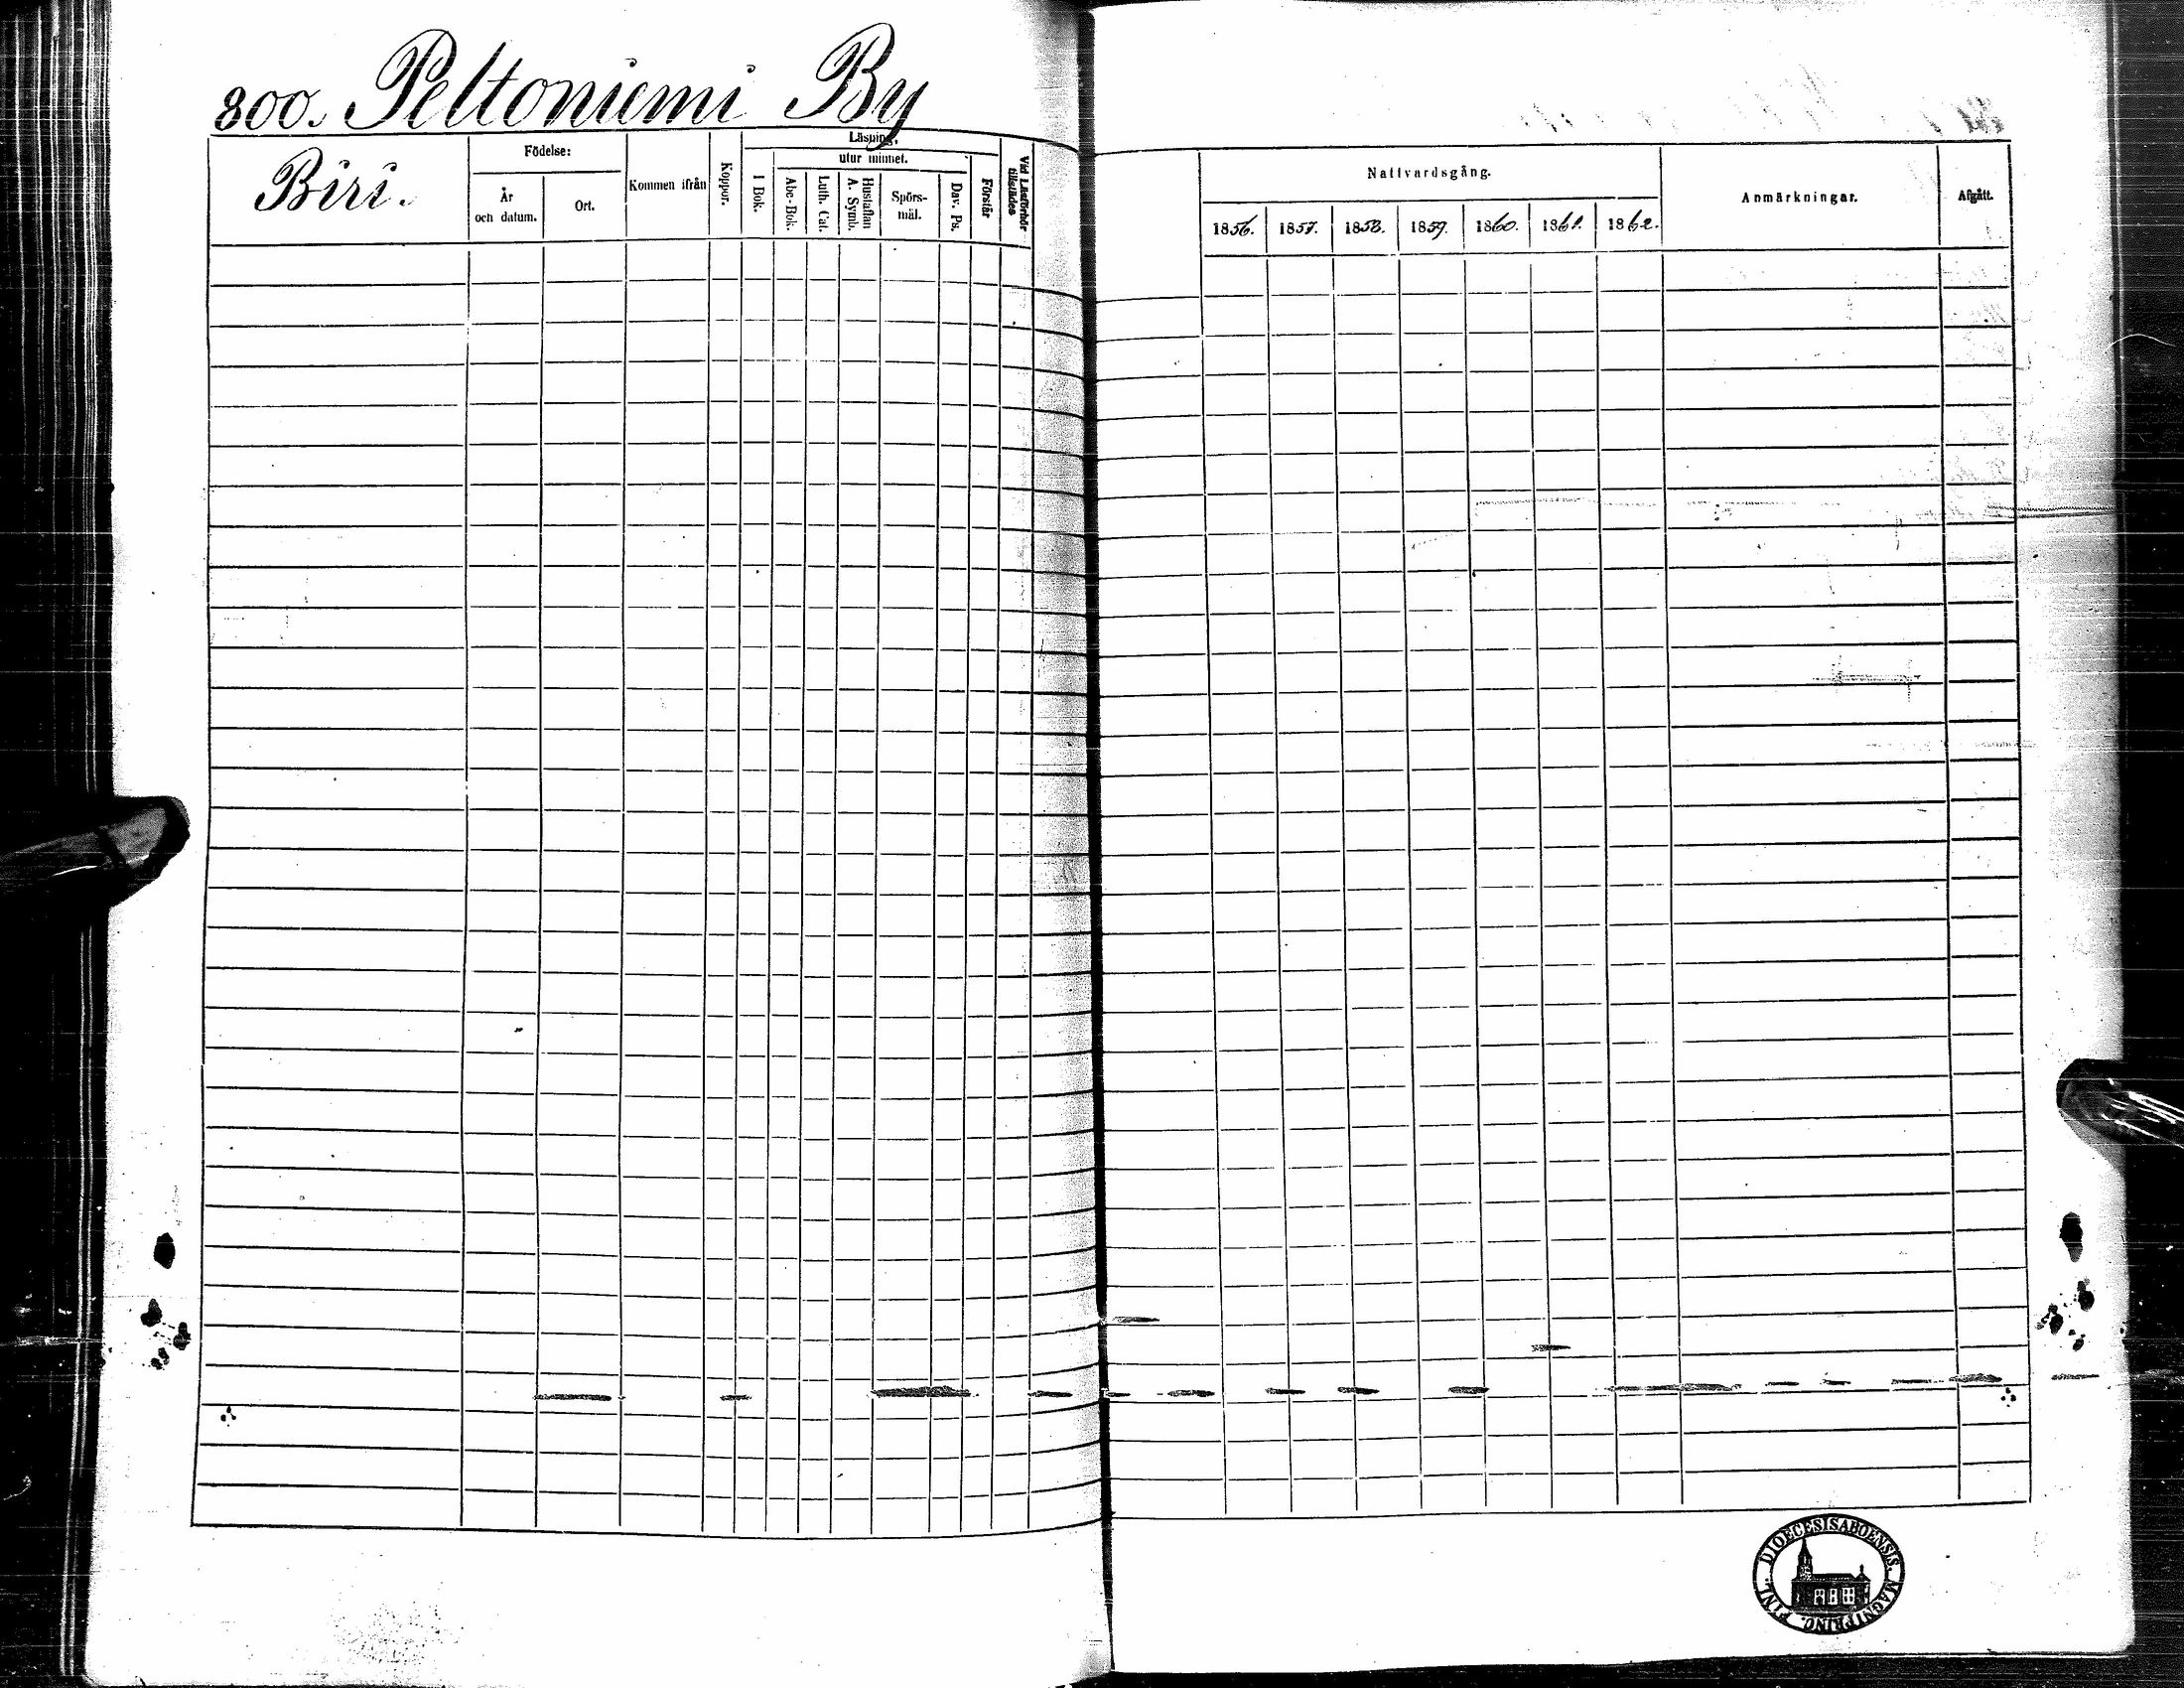 800. Peltoniemi By
Biri.
Födelse:
År
och datum.
Ort.
Kommen ifrån
Koppor.
Läsning,
utur minnet.
I Bok.
Abc-Bok.
Luth. Cat.
Hustaflan
A. Symb.
Spörs-
mål.
Dav. Ps.
Förstår
Vid Läsförhör
tillstädes
Nattvardsgång.
1856. 1857. 1858. 1859. 1860. 1861. 1862.
Anmärkningar.
Afgått.
DIOECESIS ABOENSIS. MAGNI PRINC. FINL.